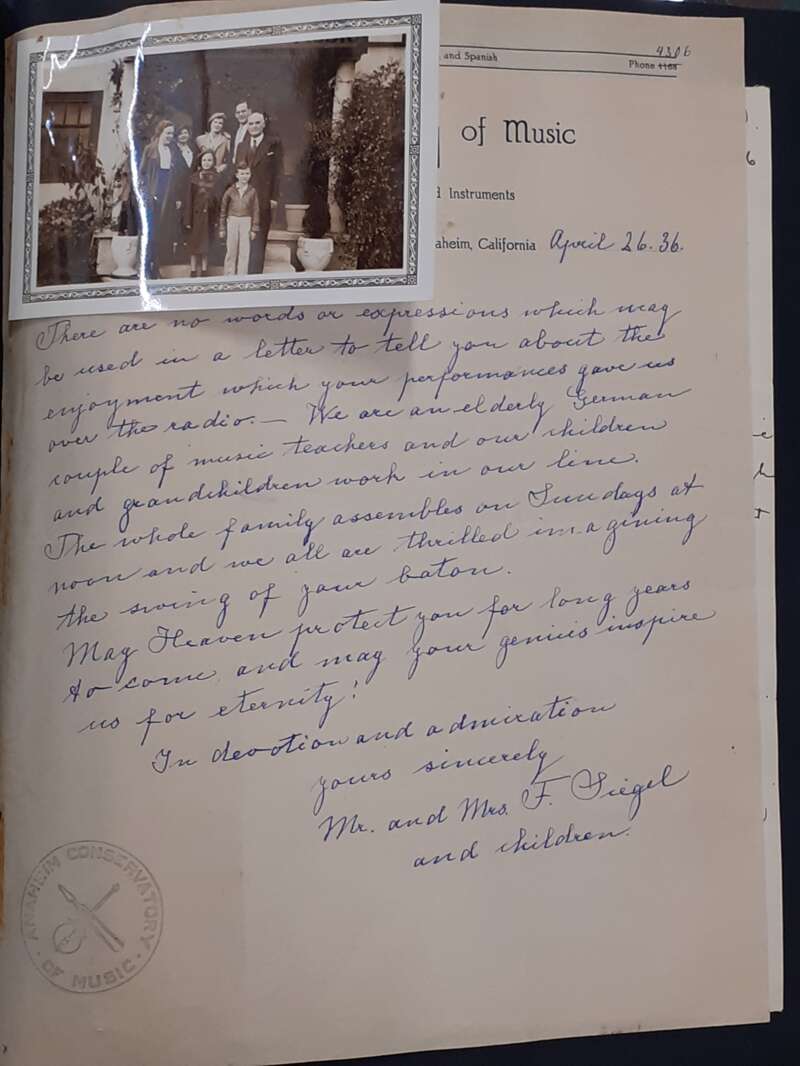 and Spanish
4306
Phone 1168
of Music
Instruments
aheim, California April 26. 36.
There are no words or expressions which may
be used in a letter to tell you about the
enjoyment which your performances gave us
over the radio. — We are an elderly German
couple of music teachers and our children
and grandchildren work in our line.
The whole family assembles on Sundays at
noon and we all are thrilled imagining
the swing of your baton.
May Heaven protect you for long years
to come, and may your genius inspire
us for eternity!
In devotion and admiration
yours sincerely
Mr. and Mrs. F. Siegel
and children.
ANAHEIM CONSERVATORY
OF MUSIC